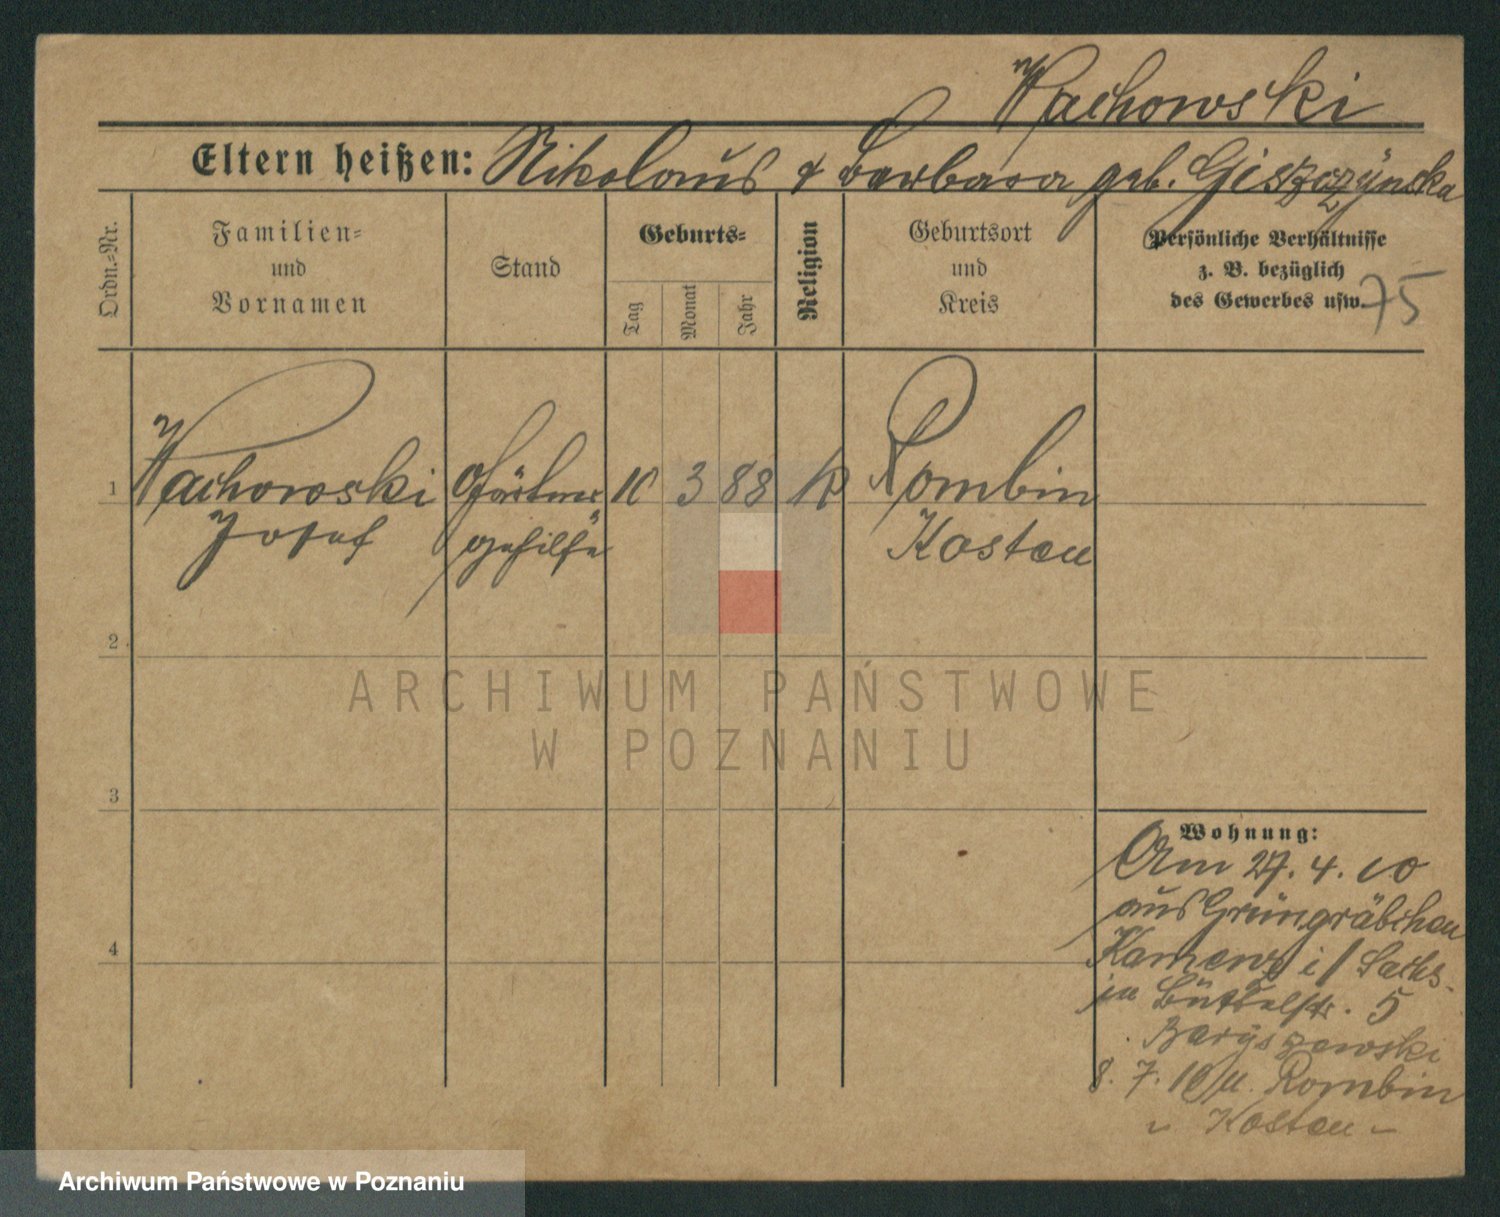 Wachowski
Eltern heißen: Nikolaus & Barbara geb. Giszczÿnska
Ordn.-Nr.
Familien-
und
Vornamen
Stand
Geburts-
Tag
Monat
Jahr
Religion
Geburtsort
und
Kreis
Persönliche Verhältnisse
z. B. bezüglich
des Gewerbes usw.
75
1
Wachowski
Josef
Gärtner
gehilfe
10 3 88 k
Rombin
Kosten
2
3
4
Wohnung:
Am 27. 4. 10
aus Grüngräbchen
Kamenz i/Sachs.
in Büttelstr. 5
8. 7. 10 n. Rombin
Kosten
ARCHIWUM PAŃSTWOWE
W POZNANIU
Archiwum Państwowe w Poznaniu